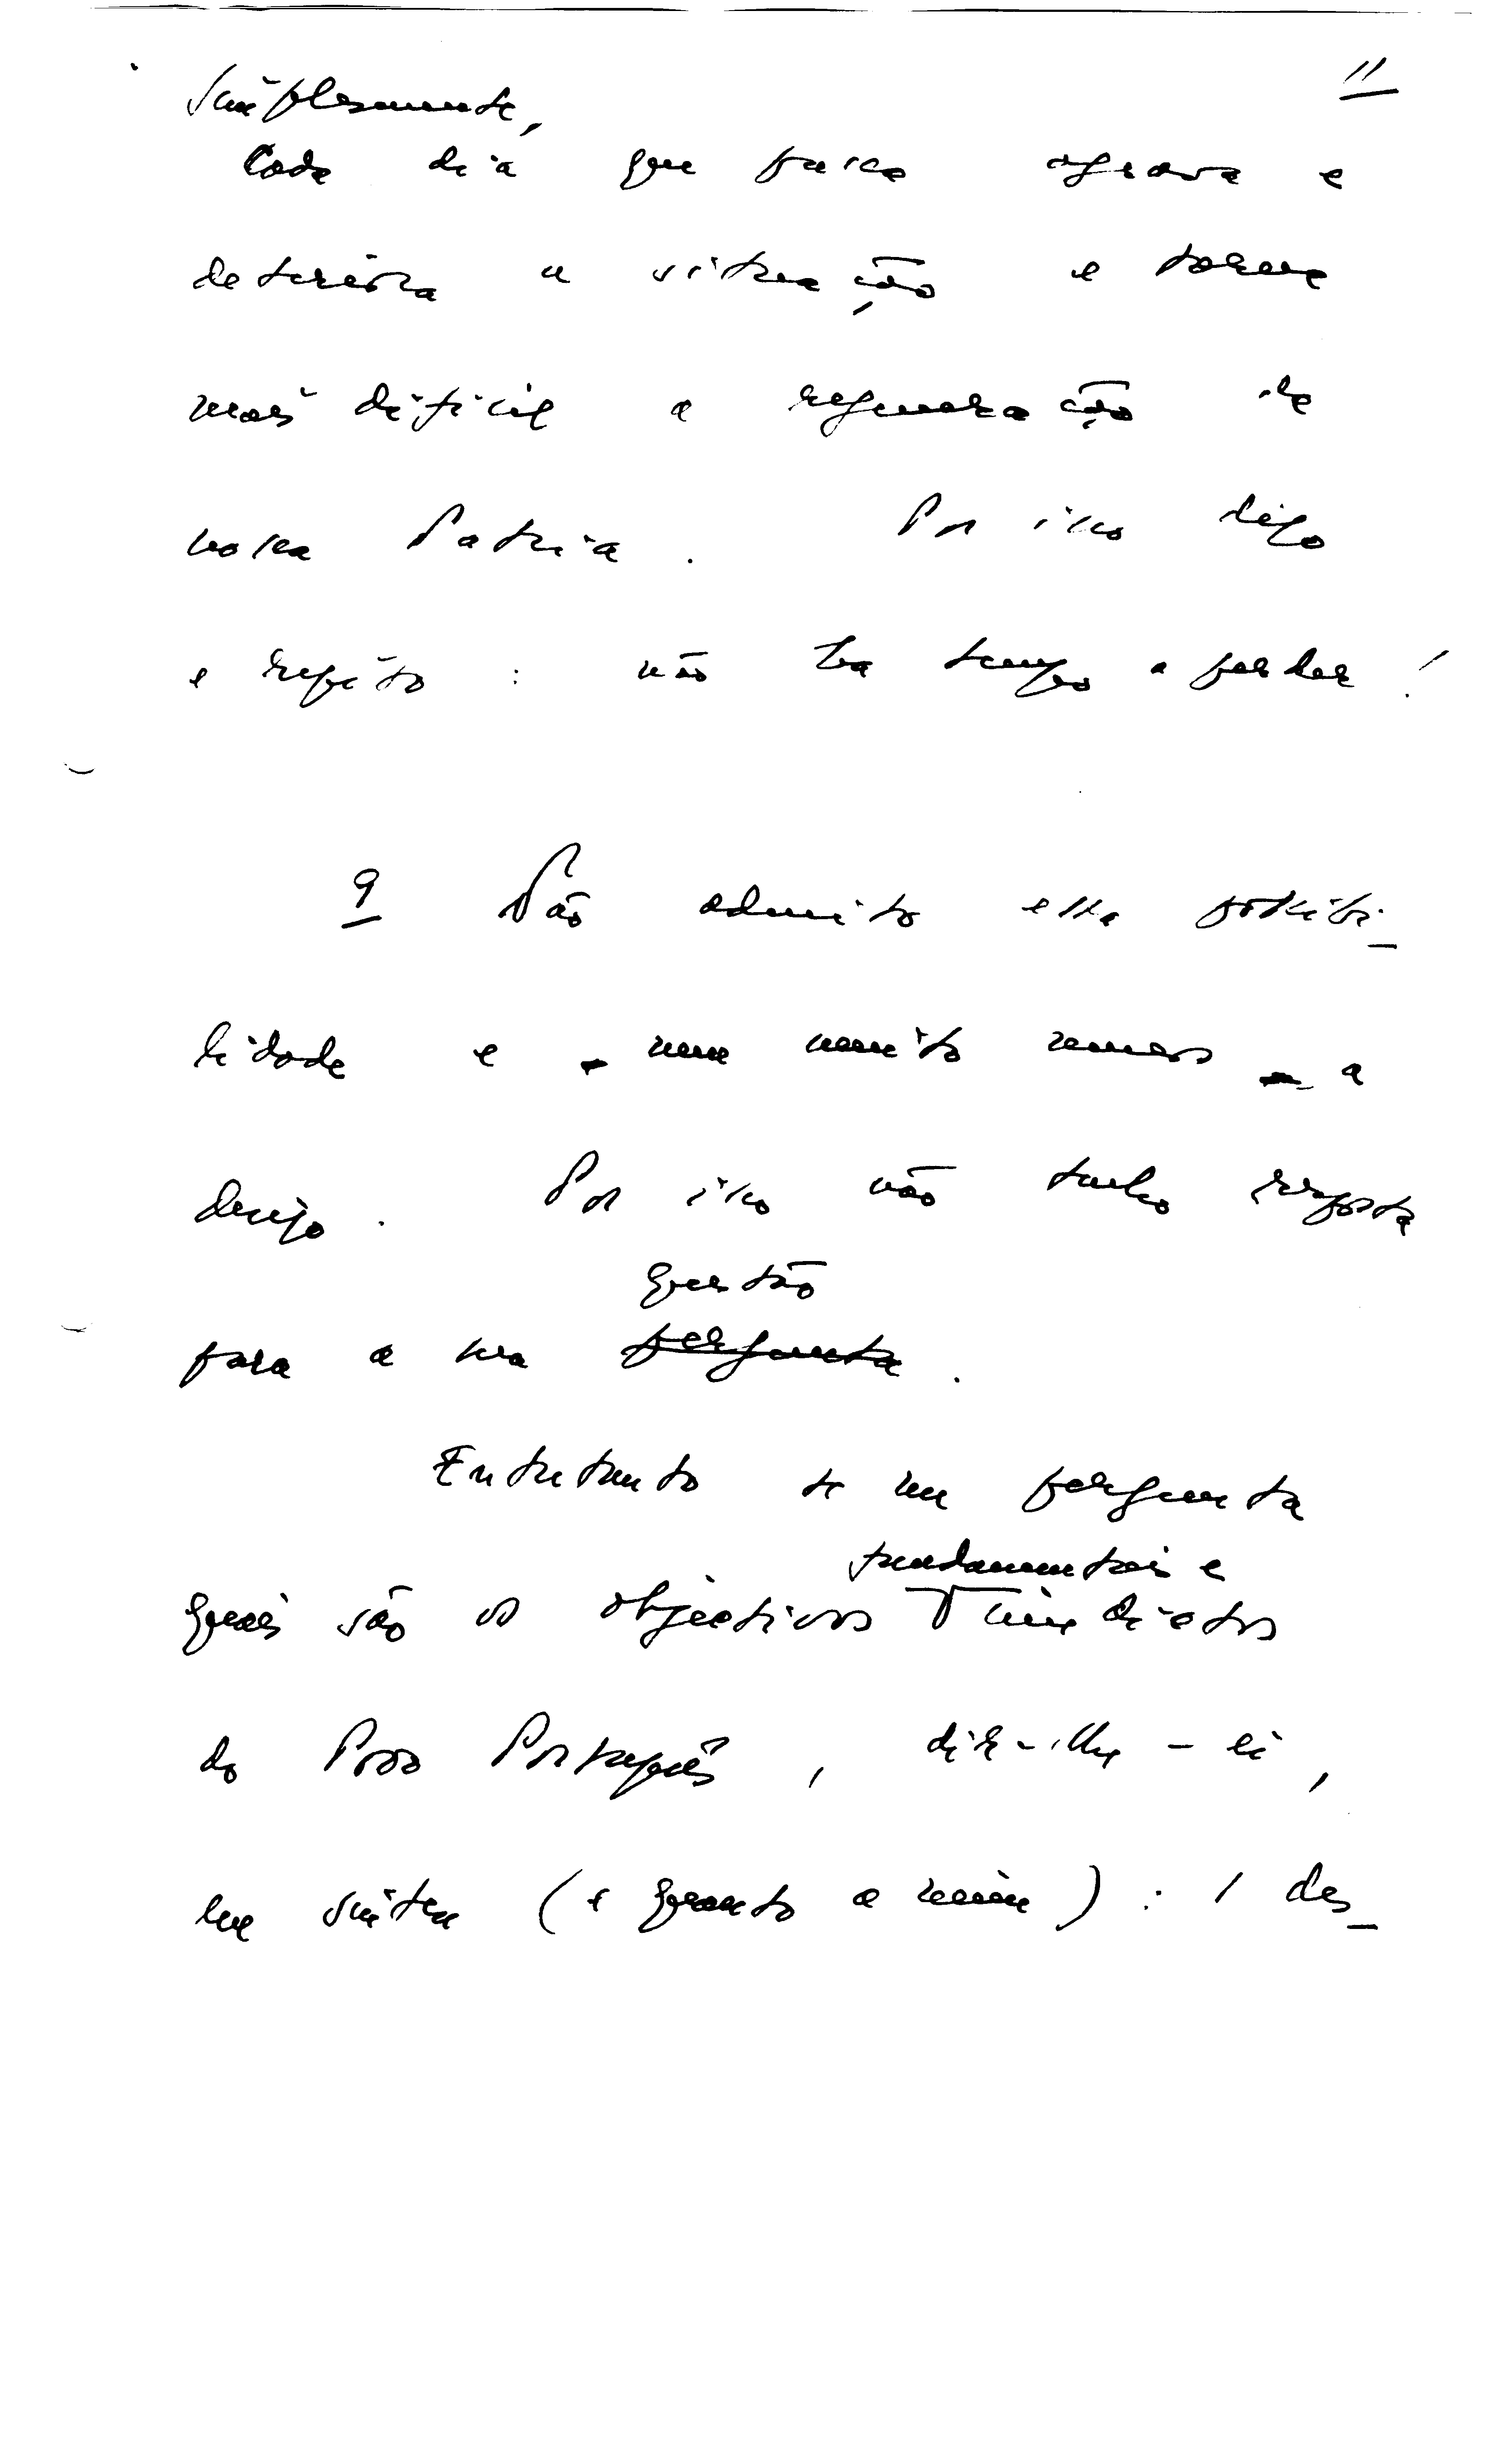 11
Simplesmente,
Cada dia que passa agrava e
deteriora a situação e torna
mais dificil a regeneração da
nossa Patria. Por isso digo
e repito: não ha tempo a perder!
9 Não admito essa possibi-
lidade e - nem muito menos - a
desejo. Por isso não tenho resposta
questão
para a sua pergunta.
Entretanto se me pergunta
fundamentais e
quais são os objectivos imediatos
do Povo Português, dir-lhe-ei,
em sintese (e quanto a mim): 1 des-